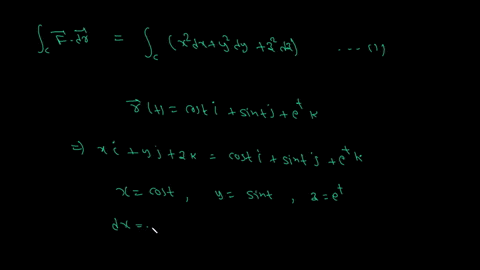 ∫_C F⃗·dr⃗ = ∫_C (x²dx+y²dy+z²dz) ---- (1)
r⃗(t) = cost i + sint j + e^t k
⇒ xi + yj + zk = cost i + sint j + e^t k
x = cost, y = sint, z = e^t
dx = -